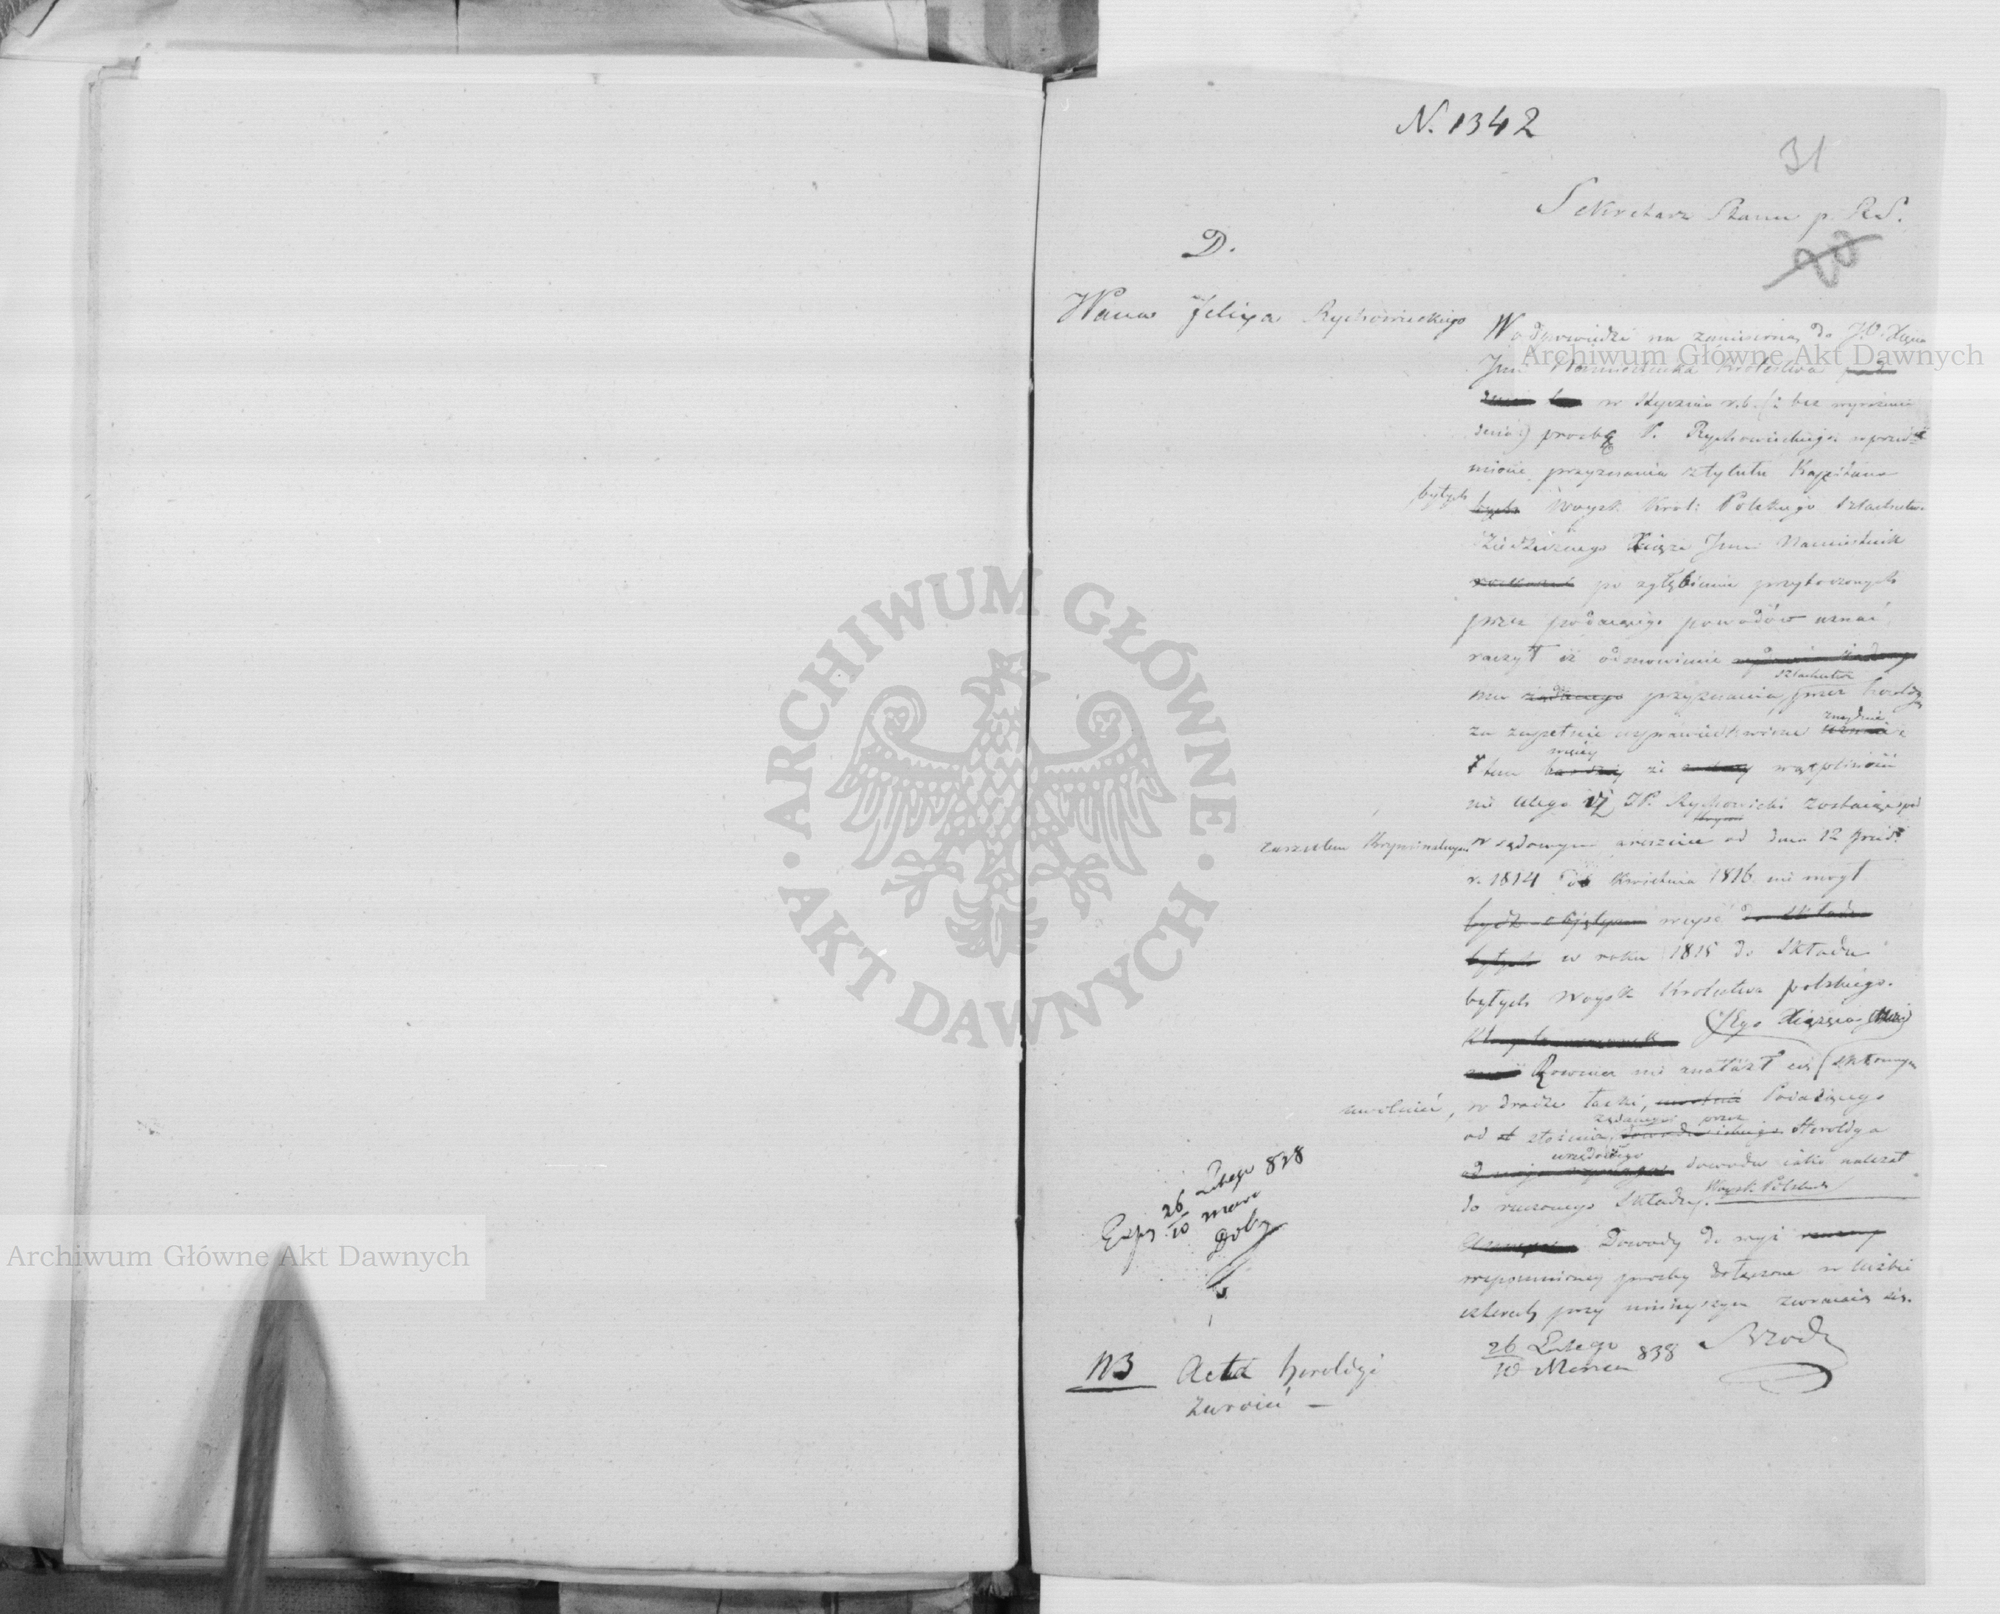 N. 1342
31
Sekretarz Stanu p. R.S.
20
D.
WPana Felixa Rychowieckiego
W odpowiedzi na zaniesioną do J.O. Xięcia
Jmci Namiestnika Królestwa
w Styczniu r.b. (: bez wyrażenia
dnia:) prosbę P. Rychowieckiego w przed
miocie przyznania z tytułu Kapitana
byłych Woysk Król: Polskiego Szlachectwa
dziedzicznego Xiąże Jmci Namiestnik
po zgłębieniu przytoczonych
przez podaiącego powodów uznać
raczył iż odmówienie
mu przyznania szlachectwa przez heroldyą
za zupełnie usprawiedliwione znayduie
tem więcey że wątpliwości
nie ulega iż JP. Rychowiecki zostaiąc pod
zarzutem Kryminalnym w sądowym areszcie od dnia 12 Grud:
r. 1814 do Kwietnia 1816 nie mógł
wejść
w roku 1815 do składu
byłych Woysk Królestwa polskiego.
Jego Xiążęca Mość
Rownież nie znalazł się skłonnym
uwolnić, w drodze łaski, Podaiącego
od złożenia żądanego przez Heroldya
urzędowego dowodu iako należał
do rzeczonego składu Woysk Polskich
Dowody do wyż
wspomnionej prosby dołączone w liczbie
czterech przy niniejszym zwracaią się.
26 Lutego
10 Marca 838
Exp. 26 Lutego 838
10 marc
NB Acta heroldyi
zwrócić —
Archiwum Główne Akt Dawnych
Archiwum Główne Akt Dawnych
ARCHIWUM GŁÓWNE · AKT DAWNYCH ·